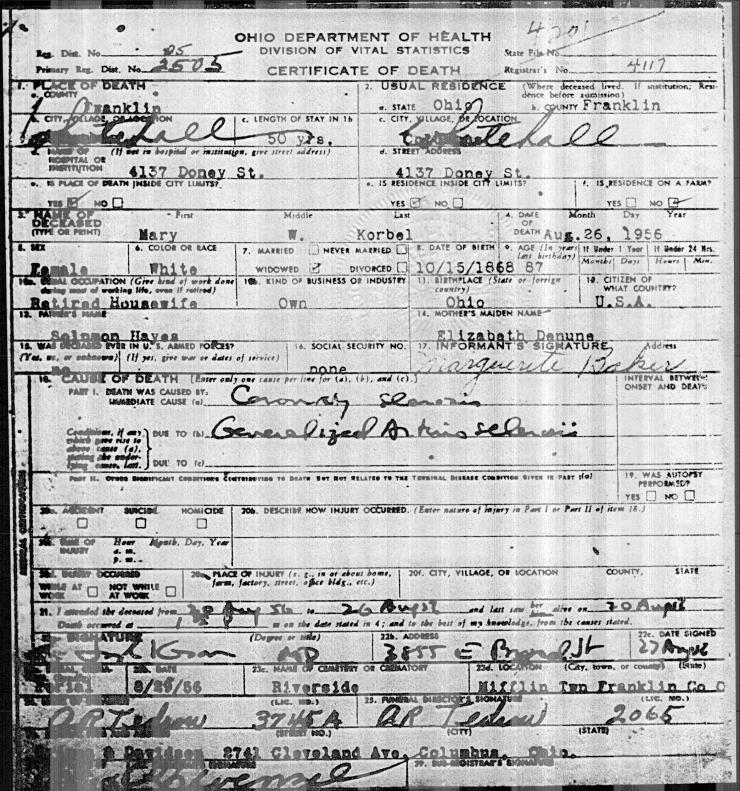 4701
OHIO DEPARTMENT OF HEALTH
DIVISION OF VITAL STATISTICS
CERTIFICATE OF DEATH
Reg. Dist. No. 25
State File No.
Primary Reg. Dist. No. 2505
Registrar's No. 4117
1. PLACE OF DEATH
a. COUNTY Franklin
2. USUAL RESIDENCE (Where deceased lived. If institution; Residence before admission)
a. STATE Ohio b. COUNTY Franklin
b. CITY, VILLAGE, OR LOCATION Whitehall
c. LENGTH OF STAY IN 1b 50 yrs.
c. CITY, VILLAGE, OR LOCATION Whitehall
d. NAME OF HOSPITAL OR INSTITUTION (If not in hospital or institution, give street address)
4137 Doney St.
d. STREET ADDRESS
4137 Doney St.
e. IS PLACE OF DEATH INSIDE CITY LIMITS?
YES NO
e. IS RESIDENCE INSIDE CITY LIMITS?
YES NO
f. IS RESIDENCE ON A FARM?
YES NO
3. NAME OF DECEASED (TYPE OR PRINT)
First Middle Last
Mary W. Korbel
4. DATE OF DEATH Month Day Year
Aug. 26, 1956
5. SEX
Female
6. COLOR OR RACE
White
7. MARRIED NEVER MARRIED
WIDOWED DIVORCED
8. DATE OF BIRTH
10/15/1868
9. AGE (In years last birthday)
87
If Under 1 Year If Under 24 Hrs.
Months Days Hours Min.
10a. USUAL OCCUPATION (Give kind of work done during most of working life, even if retired)
Retired Housewife
10b. KIND OF BUSINESS OR INDUSTRY
Own
11. BIRTHPLACE (State or foreign country)
Ohio
12. CITIZEN OF WHAT COUNTRY?
U.S.A.
13. FATHER'S NAME
Solomon Hayes
14. MOTHER'S MAIDEN NAME
Elizabeth Denune
15. WAS DECEASED EVER IN U.S. ARMED FORCES?
(Yes, no, or unknown) (If yes, give war or dates of service)
no
16. SOCIAL SECURITY NO.
none
17. INFORMANT'S SIGNATURE Address
Marguerite Baker
18. CAUSE OF DEATH (Enter only one cause per line for (a), (b), and (c).)
INTERVAL BETWEEN ONSET AND DEATH
PART I. DEATH WAS CAUSED BY:
IMMEDIATE CAUSE (a) Coronary
Conditions, if any, which gave rise to above cause (a), stating the underlying cause, last.
DUE TO (b) Generalized
DUE TO (c)
PART II. OTHER SIGNIFICANT CONDITIONS CONTRIBUTING TO DEATH BUT NOT RELATED TO THE TERMINAL DISEASE CONDITION GIVEN IN PART I(a)
19. WAS AUTOPSY PERFORMED?
YES NO
20a. ACCIDENT SUICIDE HOMICIDE
20b. DESCRIBE HOW INJURY OCCURRED. (Enter nature of injury in Part I or Part II of item 18.)
20c. TIME OF INJURY Hour Month, Day, Year
a. m.
p. m.
20d. INJURY OCCURRED
WHILE AT WORK NOT WHILE AT WORK
20e. PLACE OF INJURY (e. g., in or about home, farm, factory, street, office bldg., etc.)
20f. CITY, VILLAGE, OR LOCATION COUNTY, STATE
21. I attended the deceased from Aug 56 to 26 August and last saw her alive on 20 August
Death occurred at m on the date stated in 4; and to the best of my knowledge, from the causes stated.
SIGNATURE (Degree or title)
MD
22b. ADDRESS
3855 E Broad St
22c. DATE SIGNED
27
23b. DATE
8/29/56
23c. NAME OF CEMETERY OR CREMATORY
Riverside
23d. LOCATION (City, town, or county) (State)
Mifflin Twp Franklin Co O
(LIC. NO.)
25. FUNERAL DIRECTOR'S SIGNATURE (LIC. NO.)
A.R. Tedrow 3745A A.R. Tedrow 2065
(STREET NO.) (CITY) (STATE)
& Davidson 2741 Cleveland Ave. Columbus, Ohio.
29. SUB-REGISTRAR'S SIGNATURE